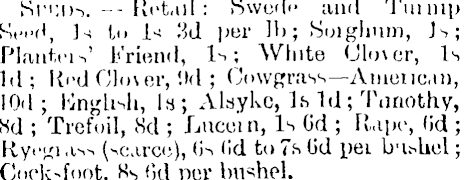 SEEDS. — Retail: Swede and Turnip
Seed, 1s to 1s 3d per lb; Sorghum, 1s;
Planters' Friend, 1s; White Clover, 1s
1d; Red Clover, 9d; Cowgrass—American,
10d; English, 1s; Alsyke, 1s 1d; Timothy,
8d; Trefoil, 8d; Lucern, 1s 6d; Rape, 6d;
Ryegrass (scarce), 6s 6d to 7s 6d per bushel;
Cocksfoot, 8s 6d per bushel.